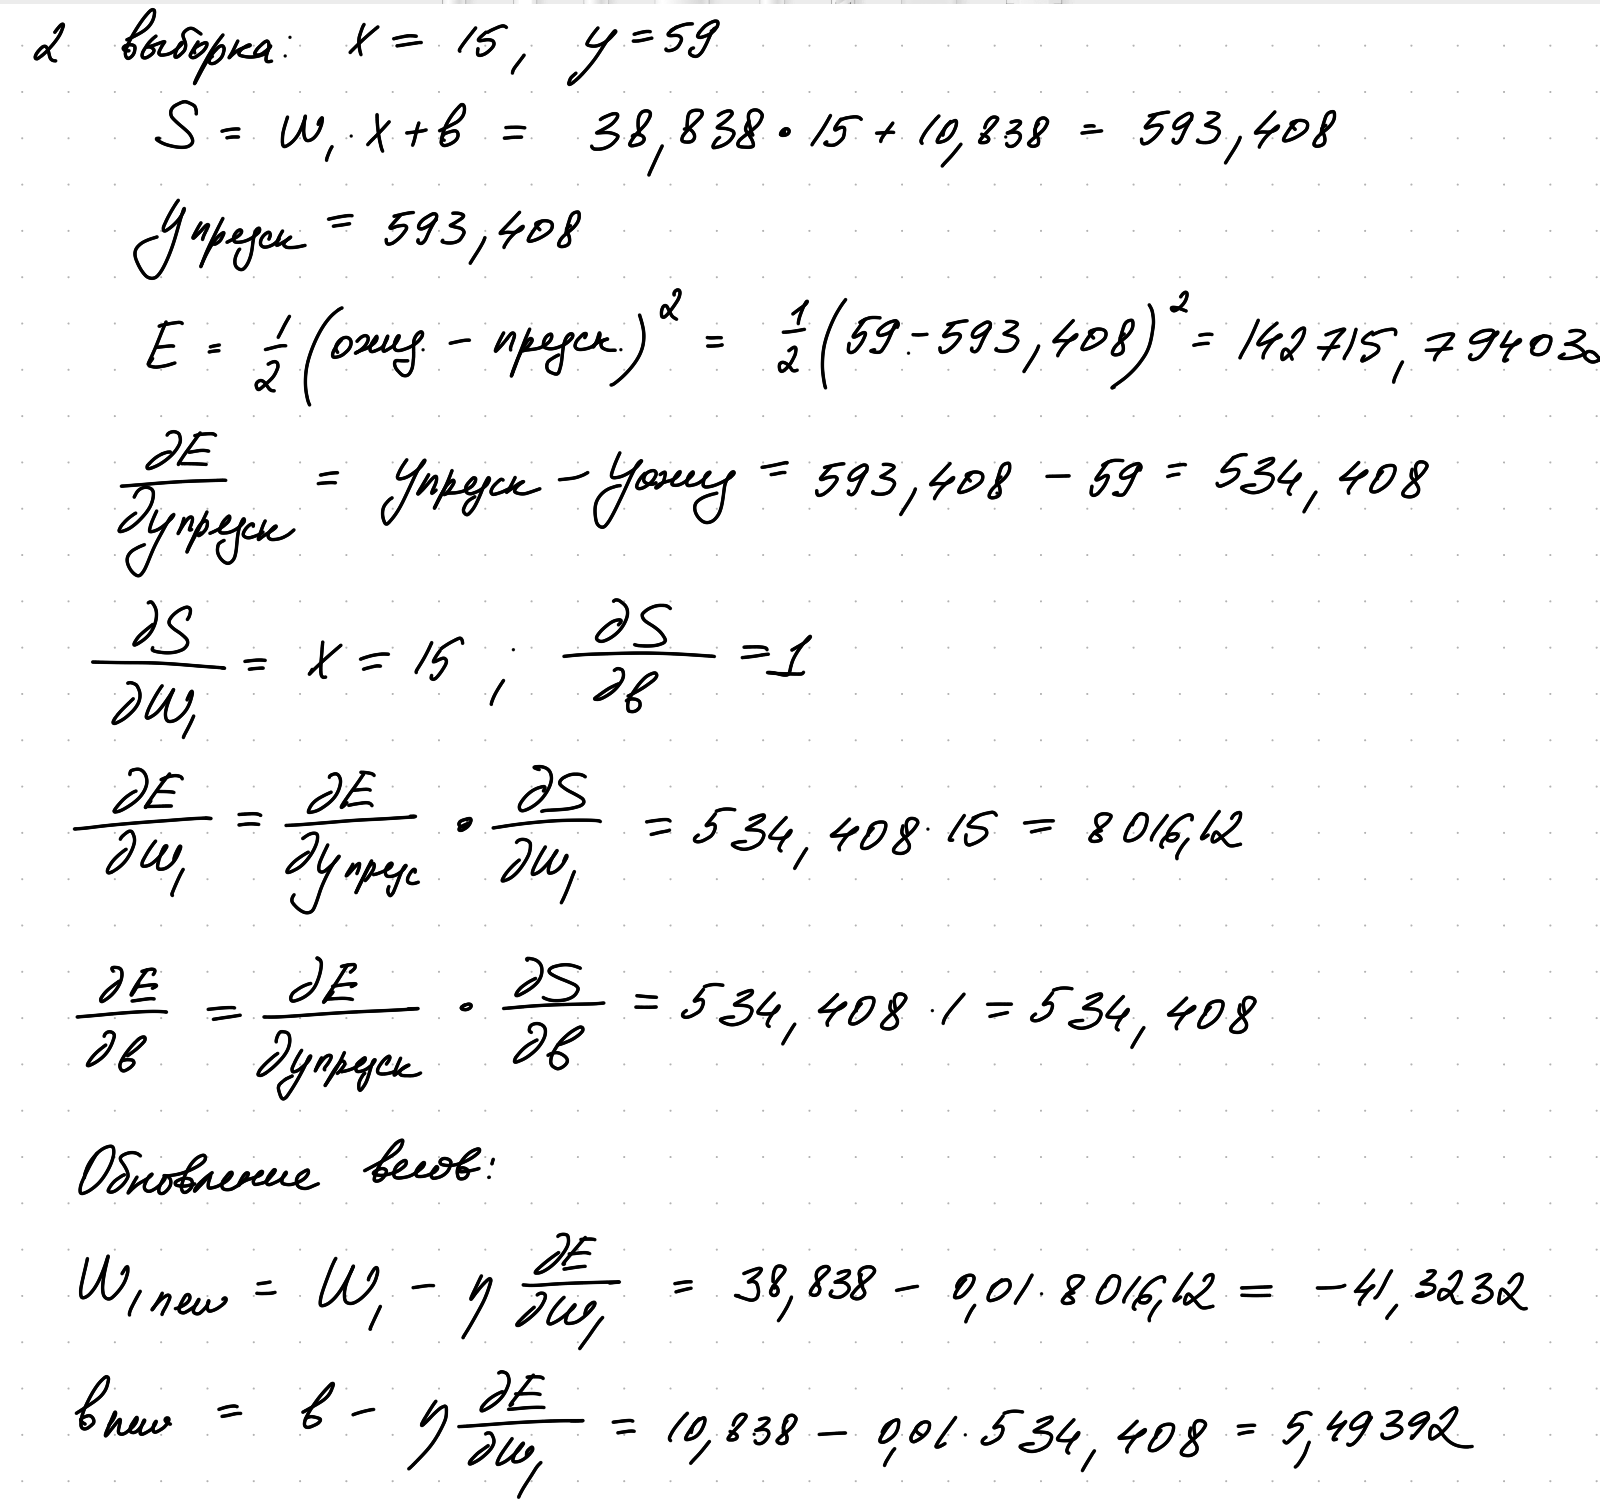 2 выборка: x = 15, y = 59
S = w₁ · x + b = 38,838 · 15 + 10,838 = 593,408
y предск = 593,408
E = 1/2 (ожид. - предск.)² = 1/2 (59 - 593,408)² = 142715,79403
∂E/∂y предск = y предск - y ожид = 593,408 - 59 = 534,408
∂S/∂w₁ = x = 15 , ∂S/∂b = 1
∂E/∂w₁ = ∂E/∂y предс · ∂S/∂w₁ = 534,408 · 15 = 8016,12
∂E/∂b = ∂E/∂y предск · ∂S/∂b = 534,408 · 1 = 534,408
Обновление весов:
w₁ new = w₁ - η ∂E/∂w₁ = 38,838 - 0,01 · 8016,12 = -41,3232
b new = b - η ∂E/∂w₁ = 10,838 - 0,01 · 534,408 = 5,49392